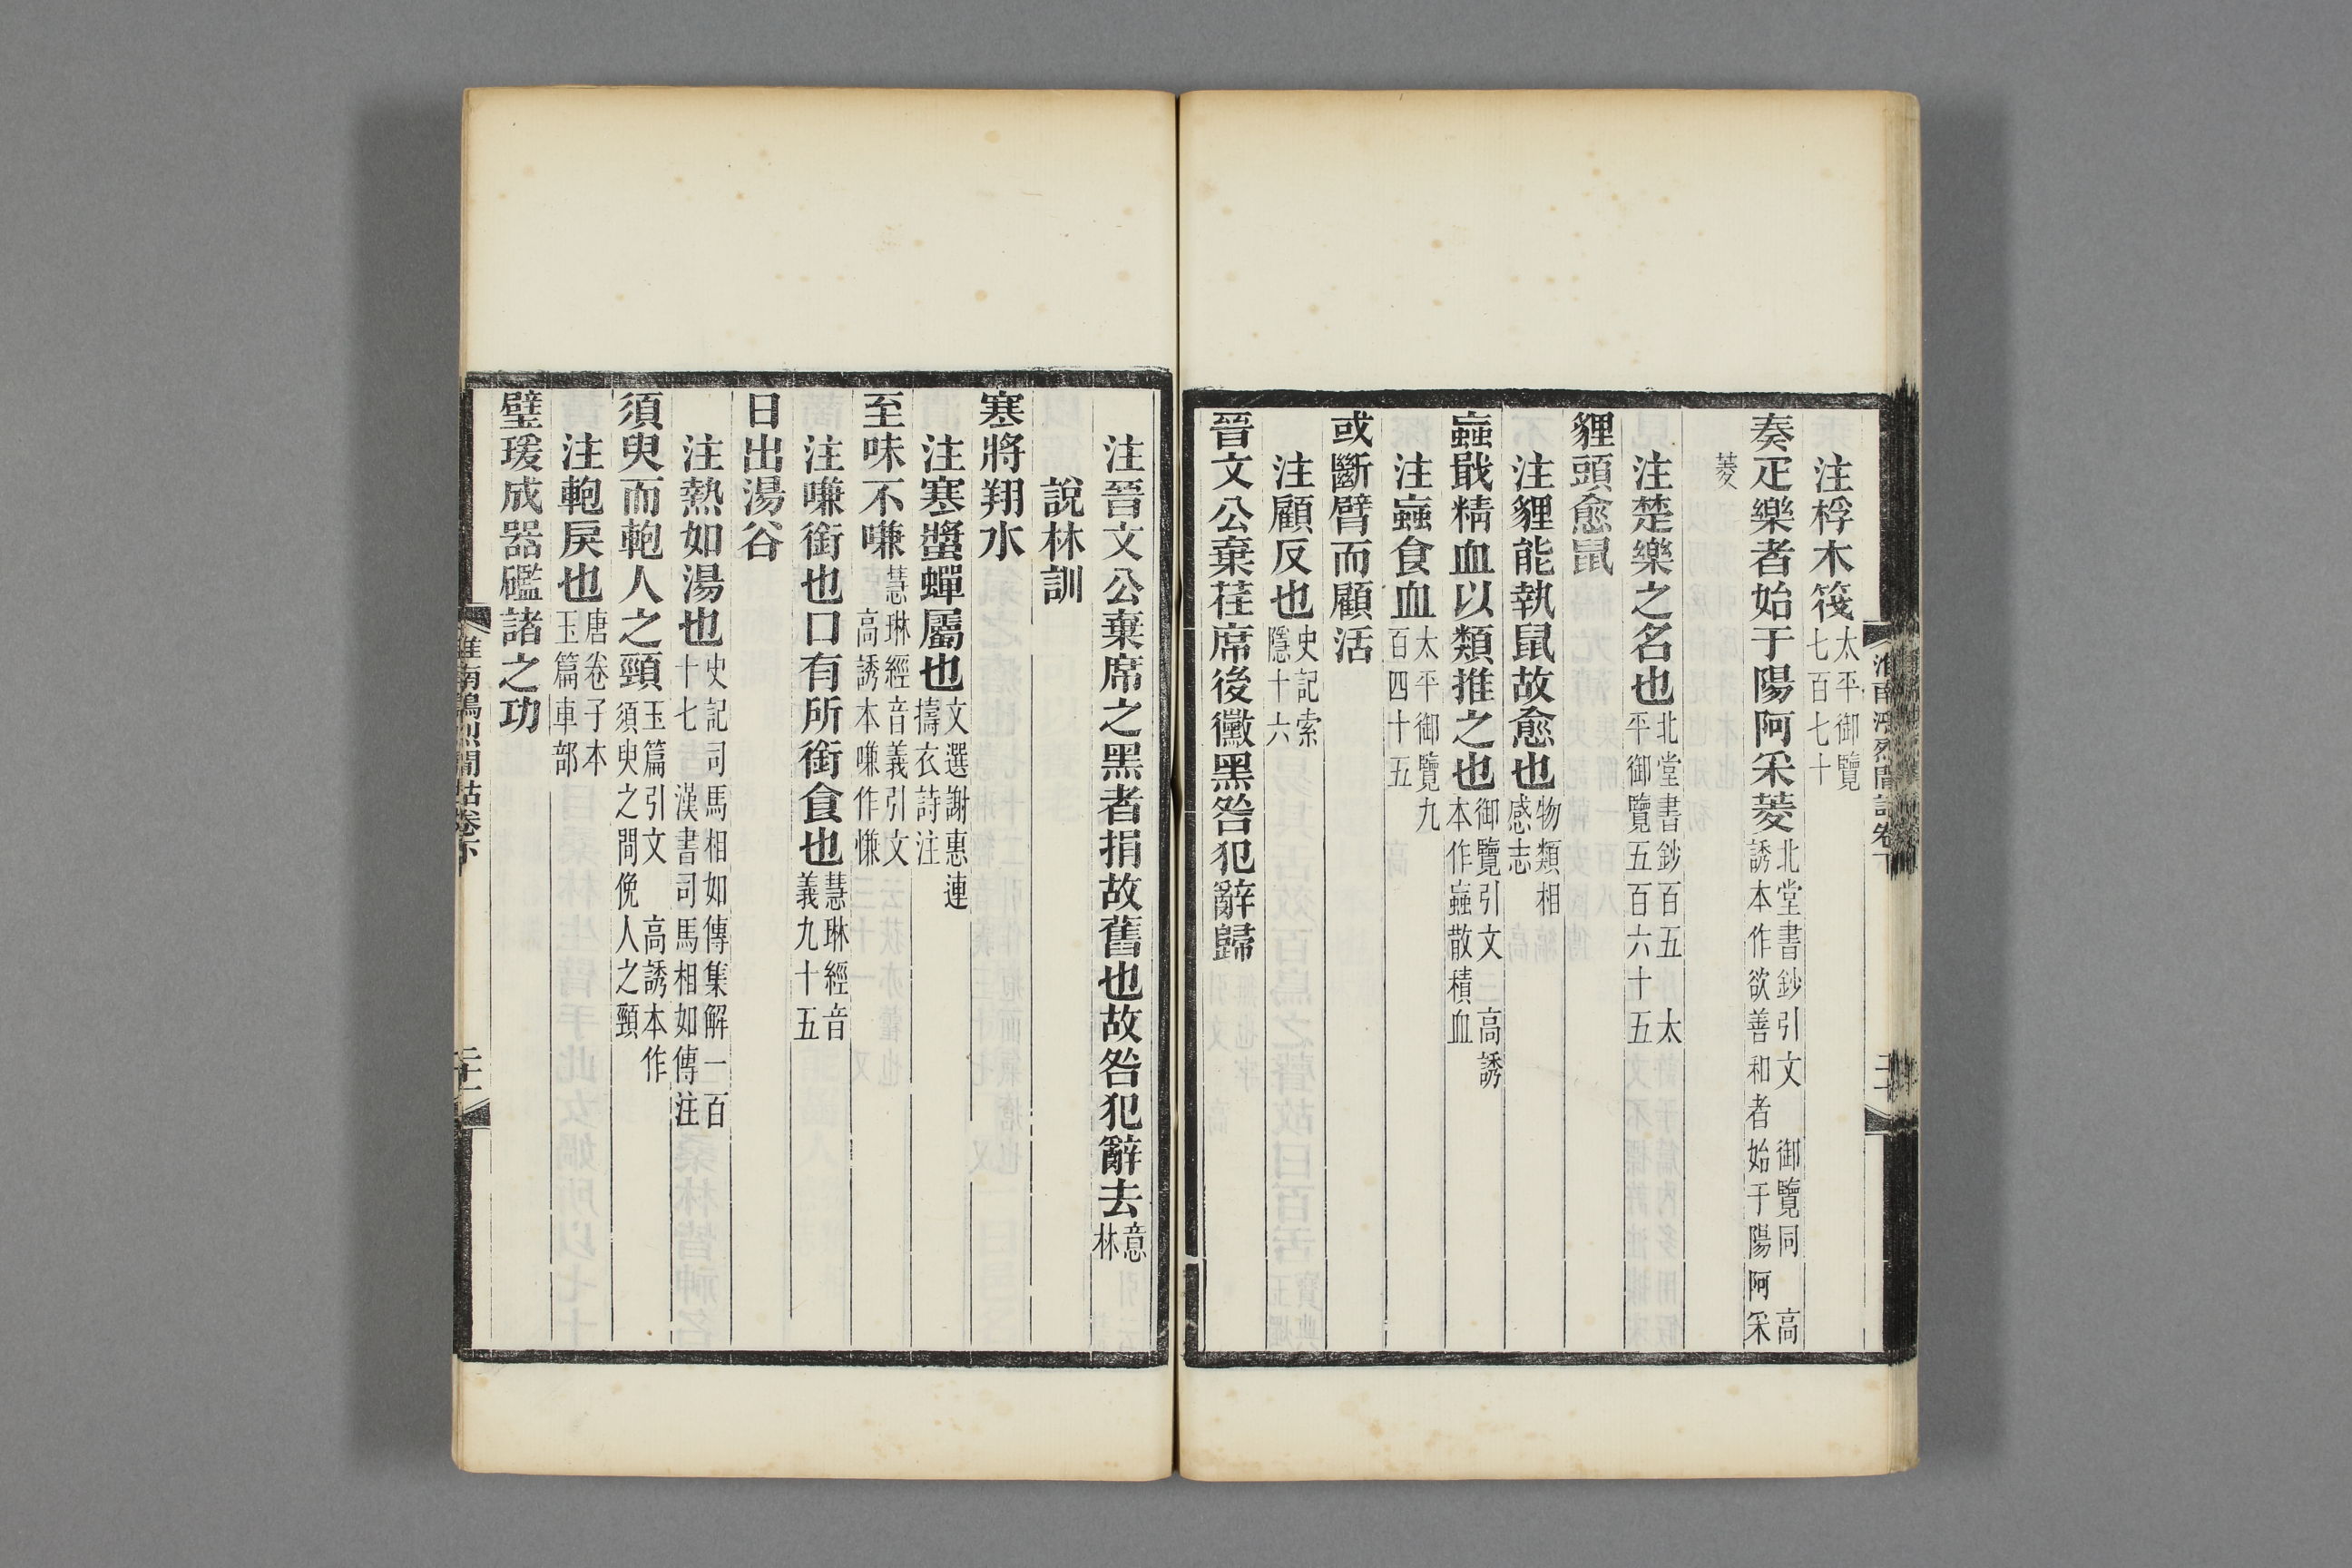 注桴木筏太平御覽七百七十
奏疋樂者始于陽阿采菱北堂書鈔引文 御覽同 高誘本作欲善和者始于陽阿采
菱
注楚樂之名也北堂書鈔百五 太平御覽五百六十五
貍頭愈鼠
注貍能執鼠故愈也物類相感志
蝱戢精血以類推之也御覽引文 高誘本作蝱散積血
注蝱食血太平御覽九百四十五
或斷臂而顧活
注顧反也史記索隱十六
晉文公棄荏席後黴黑咎犯辭歸
注晉文公棄席之黑者捐故舊也故咎犯辭去意林
說林訓
寒將翔水
注寒螿蟬屬也文選謝惠連擣衣詩注
至味不嗛慧琳經音義引文高誘本嗛作慊
注嗛銜也口有所銜食也慧琳經音義九十五
日出湯谷
注熱如湯也史記司馬相如傳集解一百十七 漢書司馬相如傳注
須臾而軳人之頸玉篇引文 高誘本作須臾之間俛人之頸
注軳戾也唐卷子本玉篇車部
璧瑗成器礛諸之功
淮南鴻烈閒詁卷下
二十一